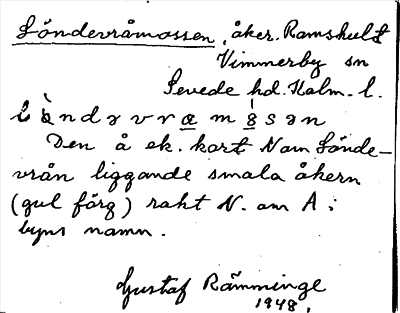 Söndevråmossen, åker. Ramshult
Vimmerby sn
Sevede hd. Kalm. l.
Den å ek. kort N om Sönde-
vrån liggande smala åkern
(gul färg) rakt N. om A i
byns namn.
Gustaf Rämminge
1948.